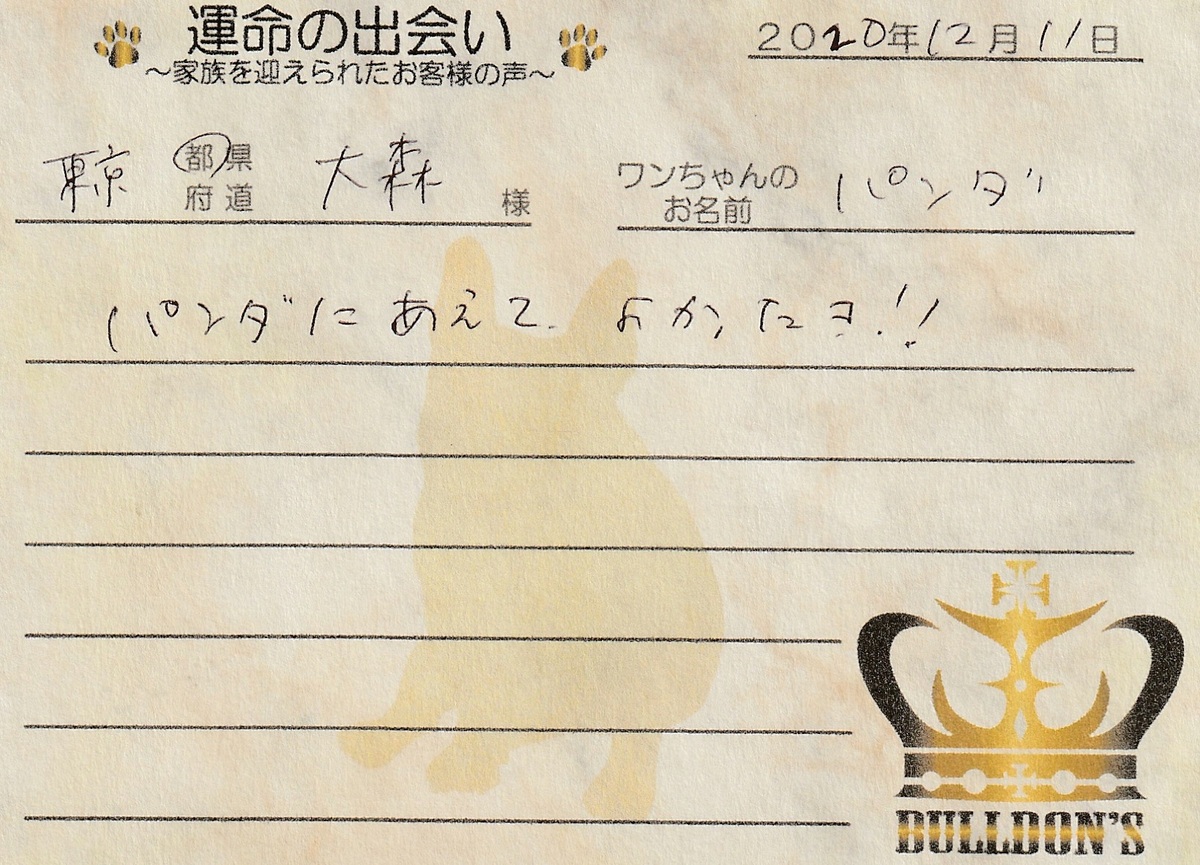 運命の出会い
～家族を迎えられたお客様の声～
2020年12月11日
東京 都県府道 大森 様
ワンちゃんのお名前 パンダ
パンダにあえて よかったヨ!!
BULLDON'S